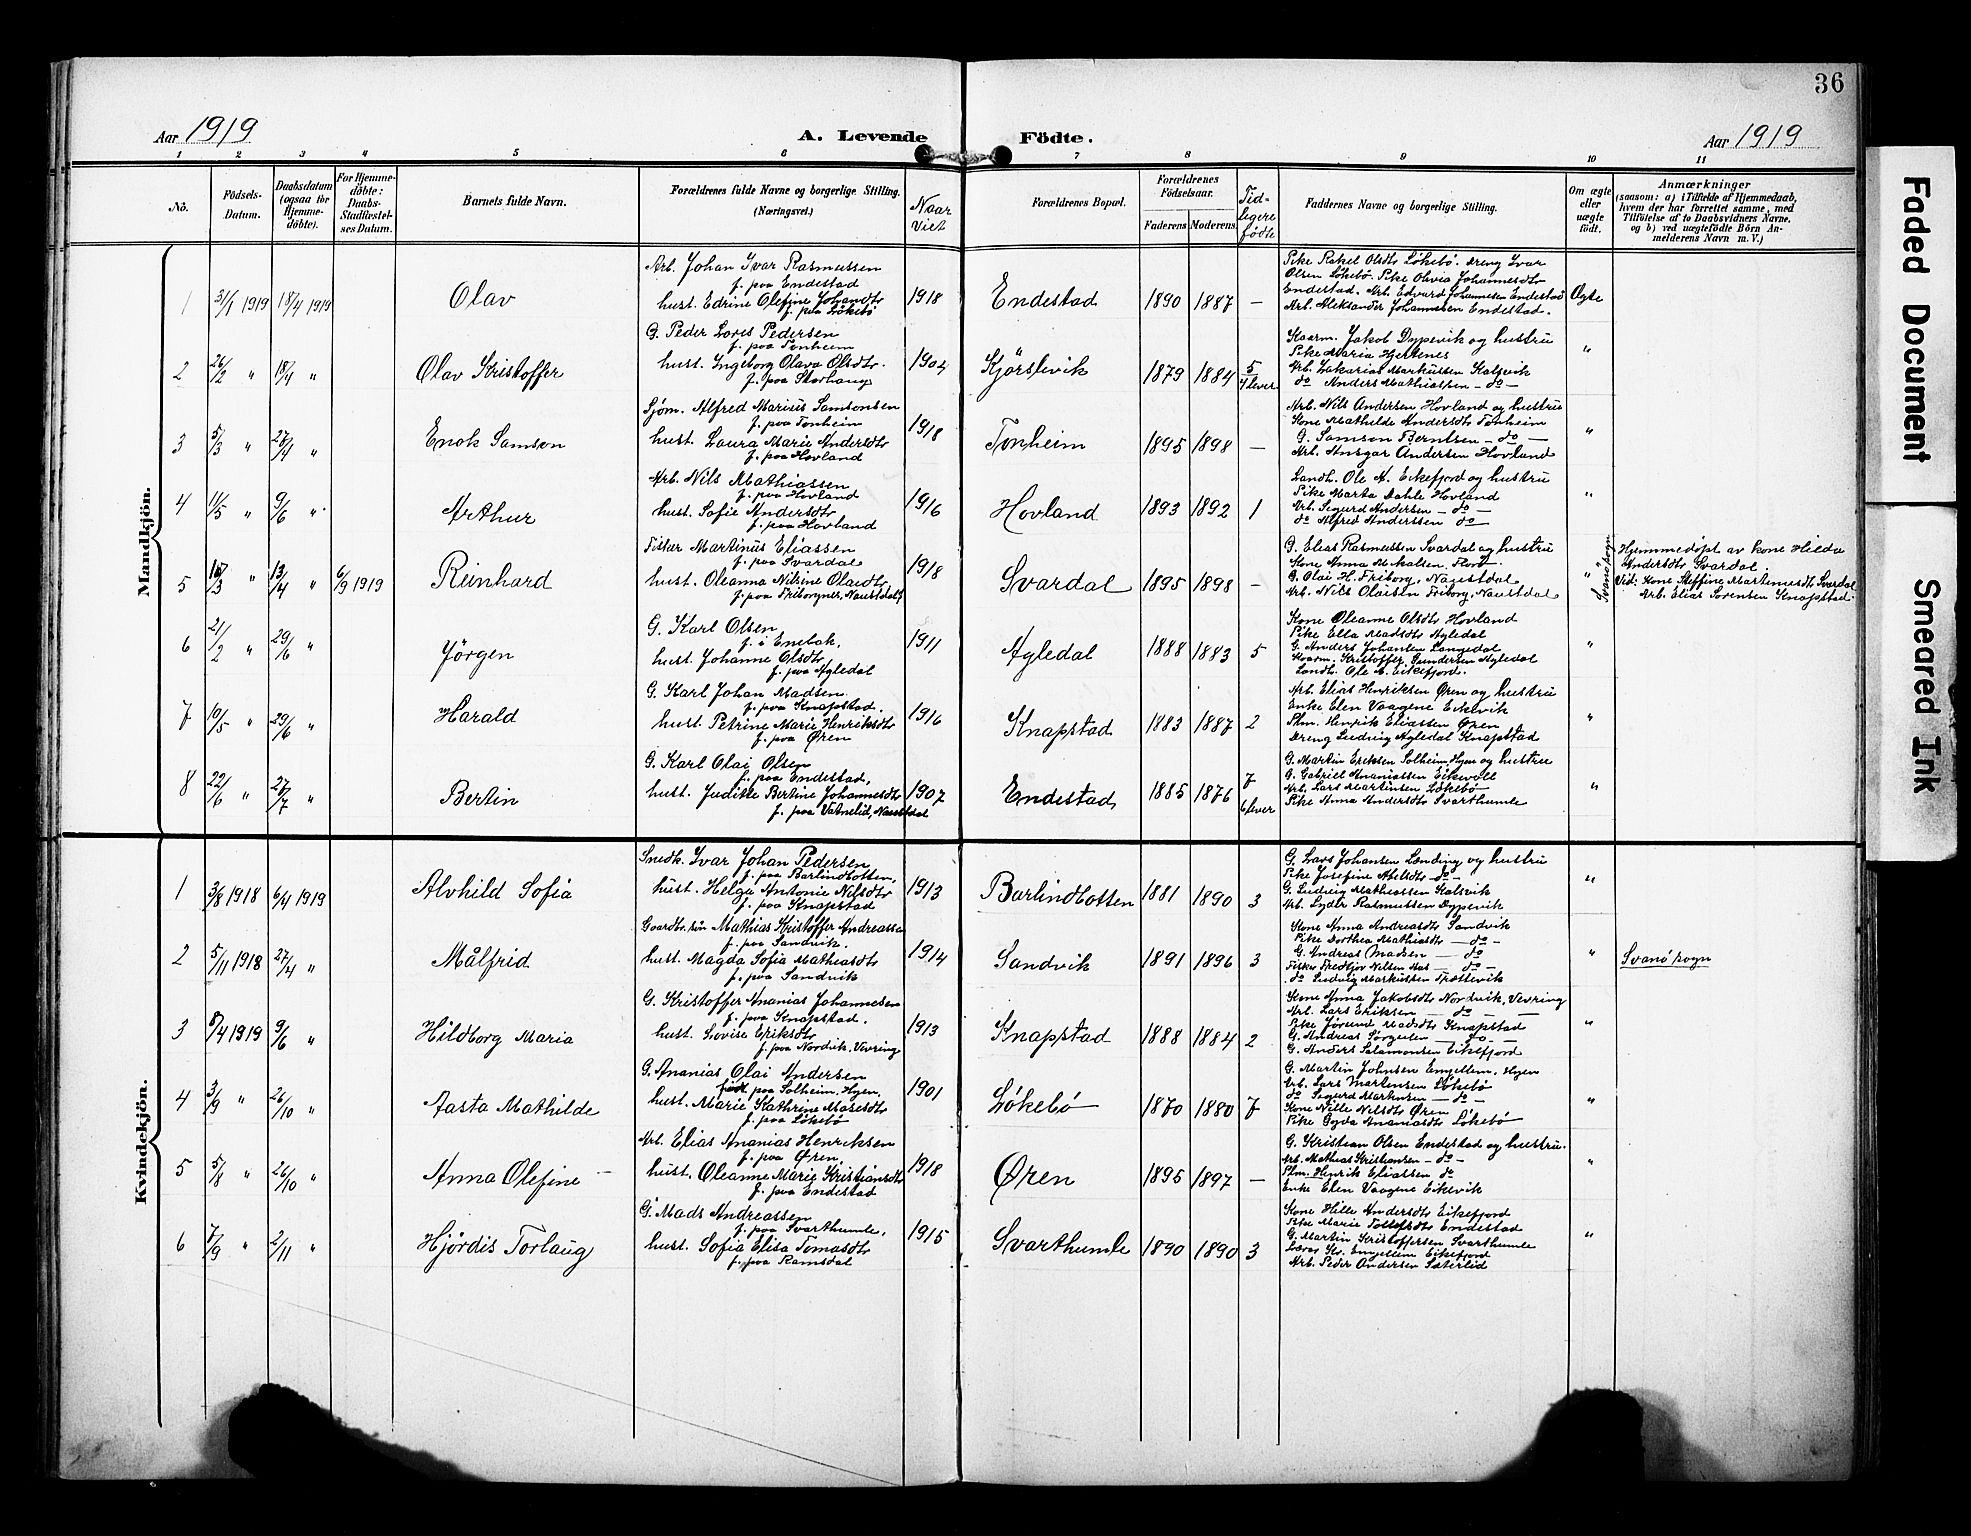 36
Aar 1919
A. Levende Födte.
Aar 1919
1 2 3 4 5 6 7 8 9 10 11
No.
Födsels-
Datum.
Daabsdatum
(ogsaa for
Hjemme-
döbte).
For Hjemme-
döbte:
Daabs-
Stadfæstel-
ses Datum.
Barnets fulde Navn.
Forældrenes fulde Navne og borgerlige Stilling.
(Næringsvei.)
Naar
Viet
Forældrenes Bopæl.
Forældrenes
Födselsaar.
Faderens Moderens.
Tid-
ligere
födte
Faddernes Navne og borgerlige Stilling.
Om ægte
eller
uægte
födt.
Anmærkninger
(saasom: a) i Tilfælde af Hjemmedaab,
hvem der har forrettet samme, med
Tilföielse af to Daabsvidners Navne,
og b) ved uægtefödte Börn An-
melderens Navn m. V.)
Mandkjön.
1 31/1 1919 18/4 1919
Olav
Arb. Johan Ivar Rasmussen
f. paa Endestad
hust. Edrine Olefine Johansdtr
f. paa Løkebø
1918
Endestad
1890 1887 —
Pike Rakel Olsdtr Løkebø. Dreng Ivar
Olsen Løkebø. Pike Olivia Johannesdtr
Endestad. Arb. Edvard Johannesen Endestad
Arb. Aleksander Johannesen Endestad.
Ægte
2 26/2 " 18/4 "
Olav Kristoffer
G. Peder Lores Pedersen
f. paa Tonheim
hust. Ingeborg Olava Olsdtr.
f. paa Storhaug
1904
Kjørslevik
1879 1884 5
4 lever
Kaarm. Jakob Dypevik og hustru
Pike Maria Hjertenes
Arb. Zakarias Markussen Kalsvik
do Anders Mathiassen — do —
"
3 5/3 " 27/4 "
Enok Samson
Sjøm. Alfred Marius Samsonsen
f. paa Tonheim
hust. Laura Marie Andersdtr
f. paa Hovland
1918
Tonheim
1895 1898 —
Arb. Nils Andersen Hovland og hustru
Kone Mathilde Andersdtr Tonheim
G. Samson Berntsen — do —
Arb. Ansgar Andersen Hovland
"
4 11/5 " 9/6 "
Arthur
Arb. Nils Mathiassen
f. paa Hovland
hust. Sofie Andersdtr
f. paa Hovland
1916
Hovland
1893 1892 1
Landh. Ole A. Eikefjord og hustru
Pike Marta Dahle Hovland
Arb. Sigurd Andersen — do —
do Alfred Anderssen do
"
5 /3 " 13/4 " 6/9 1919
Reinhard
Fisker Martinus Eliassen
f. paa Svardal
hust. Oleanna Nilsine Olaidtr
f. paa Friborgner, Naustdal
1918
Svardal
1895 1898 —
G. Elias Rasmussen Svardal og hustru
Kone Anna Mikalsen, Florø.
G. Olai H. Friborg, Naustdal
Arb. Nils Olaisen Friborg, Naustdal
"
Svanø sogn
Hjemmedøpt av kone Hilda
Andersdtr Svardal.
Vid: Kone Steffine Martinusdtr Svardal
Arb. Elias Sørensen Knapstad.
6 21/2 " 29/6 "
Jørgen
G. Karl Olsen
f. i Enebak,
hust. Johanne Olsdtr
f. paa Ågledal
1911
Agledal
1888 1883 5
Kone Oleanne Olsdtr Hovland
Pike Ella Madsdtr Agledal
G. Anders Johansen Langedal
Kaarm. Kristoffer Gundersen Agledal
Landh. Ole E. Eikefjord.
"
7 10/5 " 29/6 "
Harald
G. Karl Johan Madsen
f. paa Knapstad.
hust. Petrine Marie Henriksdtr
f. paa Øren
1916
Knapstad
1883 1887 2
Arb. Elias Henriksen Øren og hustru
Enke Elen Vaagene Eikevik
Plm. Henrik Eliassen Øren
Dreng Ludvig Agledal Knapstad
"
8 22/6 " 27/7 "
Bertin
G. Karl Olai Olsen
f. paa Endestad,
hust. Juditte Bertine Johannesdtr
f. paa Vatnelid, Naustdal
1907
Endestad
1885 1876 7
6 lever
G. Martin Eriksen Solheim Hyen og hustru
G. Gabriel Ananiassen Eikevoll
Arb. Lars Martinsen Løkebø
Pike Anna Andersdtr Svarthumle
"
Kvindekjön.
1 3/8 1918 6/4 1919
Alvhild Sofia
Snedk. Ivar Johan Pedersen
f. paa Barlindbotten,
hust. Helga Antonie Nilsdtr
f. paa Knapstad
1913
Barlindbotten
1881 1890 3
G. Lars Johansen Lænding og hustru
Pike Josefine Abelsdtr — do —
G. Ludvig Mathiassen Kalsvik
Arb. Lyder Rasmussen Dypevik
"
2 5/11 1918 27/4 "
Målfrid
Gaardbr. søn Mathias Kristoffer Andreassen
f. paa Sandvik.
hust. Magda Sofia Mathiasdtr
f. paa Sandvik
1914
Sandvik
1891 1896 3
Kone Anna Andreasdtr Sandvik
Pike Dorthea Mathiasdtr — do —
G. Andreas Madsen — do
Fisker Fredtjov Nilsen — do —
do Ludvig Markussen Trættevik
"
Svanø sogn
3 8/4 1919 9/6 "
Hildborg Maria
G. Kristoffer Ananias Johannesen
f. paa Knapstad.
hust. Lovise Eriksdtr
f. paa Nordvik, Vevring
1913
Knapstad
1888 1884 2
Kone Anna Jakobsdtr Nordvik, Vevring
Arb. Lars Eriksen — do — —
Pike Jørund Madsdtr Knapstad
G. Andreas Sørgulen — do —
G. Anders Salamonsen Eikefjord
"
4 3/9 " 26/10 "
Aasta Mathilde
G. Ananias Olai Andersen
født paa Solheim, Hyen,
hust. Marie Kathrine Mosesdtr
f. paa Løkebø
1901
Løkebø
1870 1880 7
G. Martin Johnsen Emgellem, Hyen
Arb. Lars Martensen Løkebø
do Sigurd Martensen — do —
Kone Nille Nilsdtr Øren
Pike Gyda Ananiasdtr Løkebø
"
5 5/8 " 26/10 "
Anna Olefine
Arb. Elias Ananias Henriksen
f. paa Øren,
hust. Oleanne Marie Kristiansdtr
f. paa Endestad
1918
Øren
1895 1897 —
G. Kristian Olsen Endestad og hustru.
Arb. Mathias Kristiansen — do —
Plm. Henrik Eliassen do
Enke Elen Vaagene Eikevik
"
6 7/9 " 2/11 "
Hjördis Torlaug
G. Mads Andreassen
f. paa Svarthumle,
hust. Sofia Elisa Tomasdtr
f. paa Ramsdal
1915
Svarthumle
1890 1890 3
Kone Hille Andersdtr Eikefjord
Pike Marie Tollefsdtr Endestad
G. Martin Kristoffersen Svarthumle
Lærer Kr. Emgellem Eikefjord
Arb. Peder Andersen Sæterlid
"
Faded Document
Smeared Ink